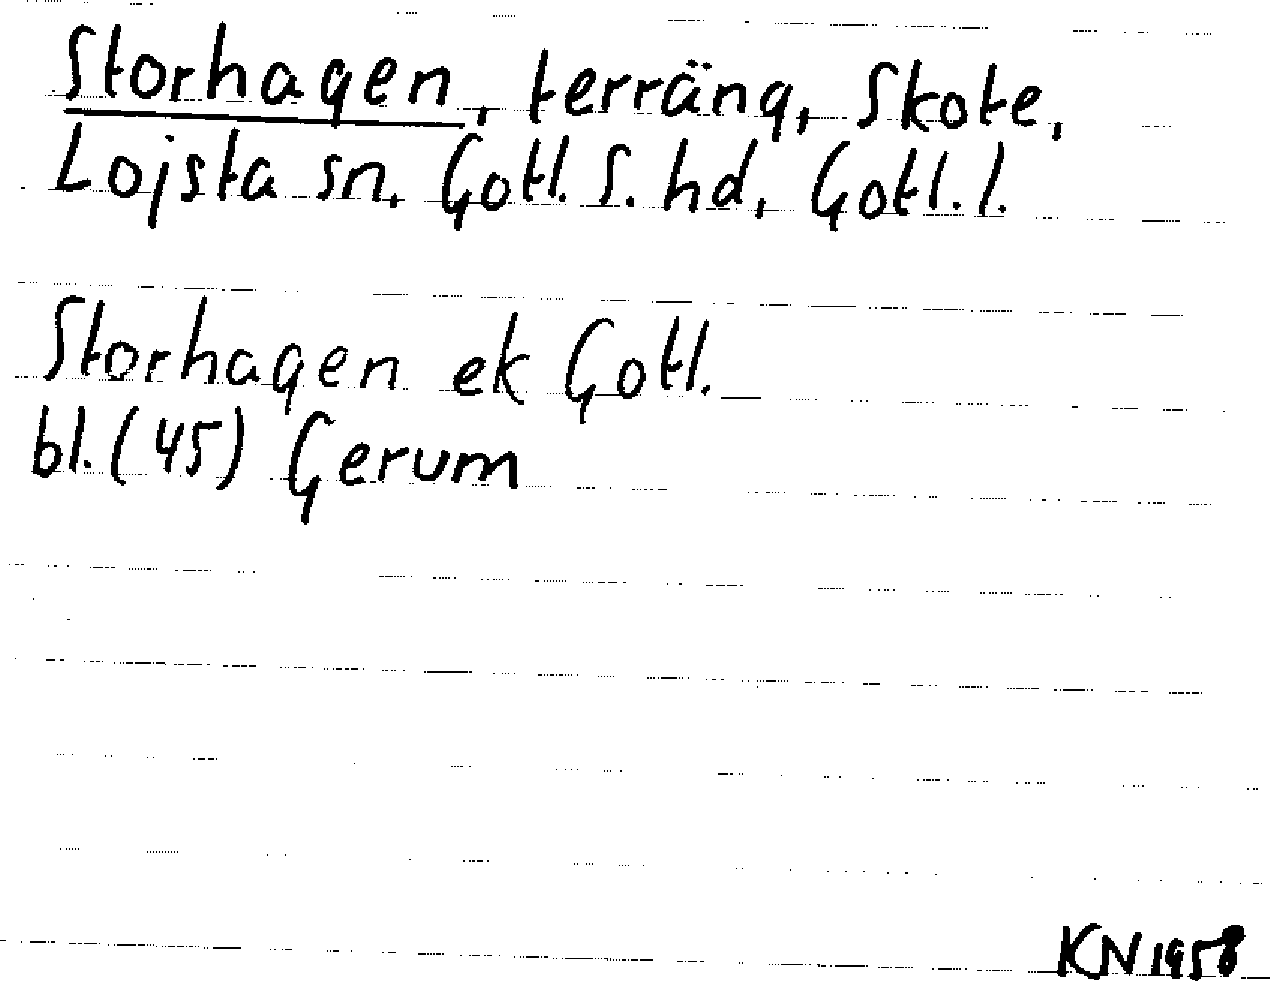 Storhagen, terräng, Skote,
Lojsta sn. Gotl. S. hd, Gotl. l.
Storhagen ek Gotl.
bl. (45) Gerum
KN 1958